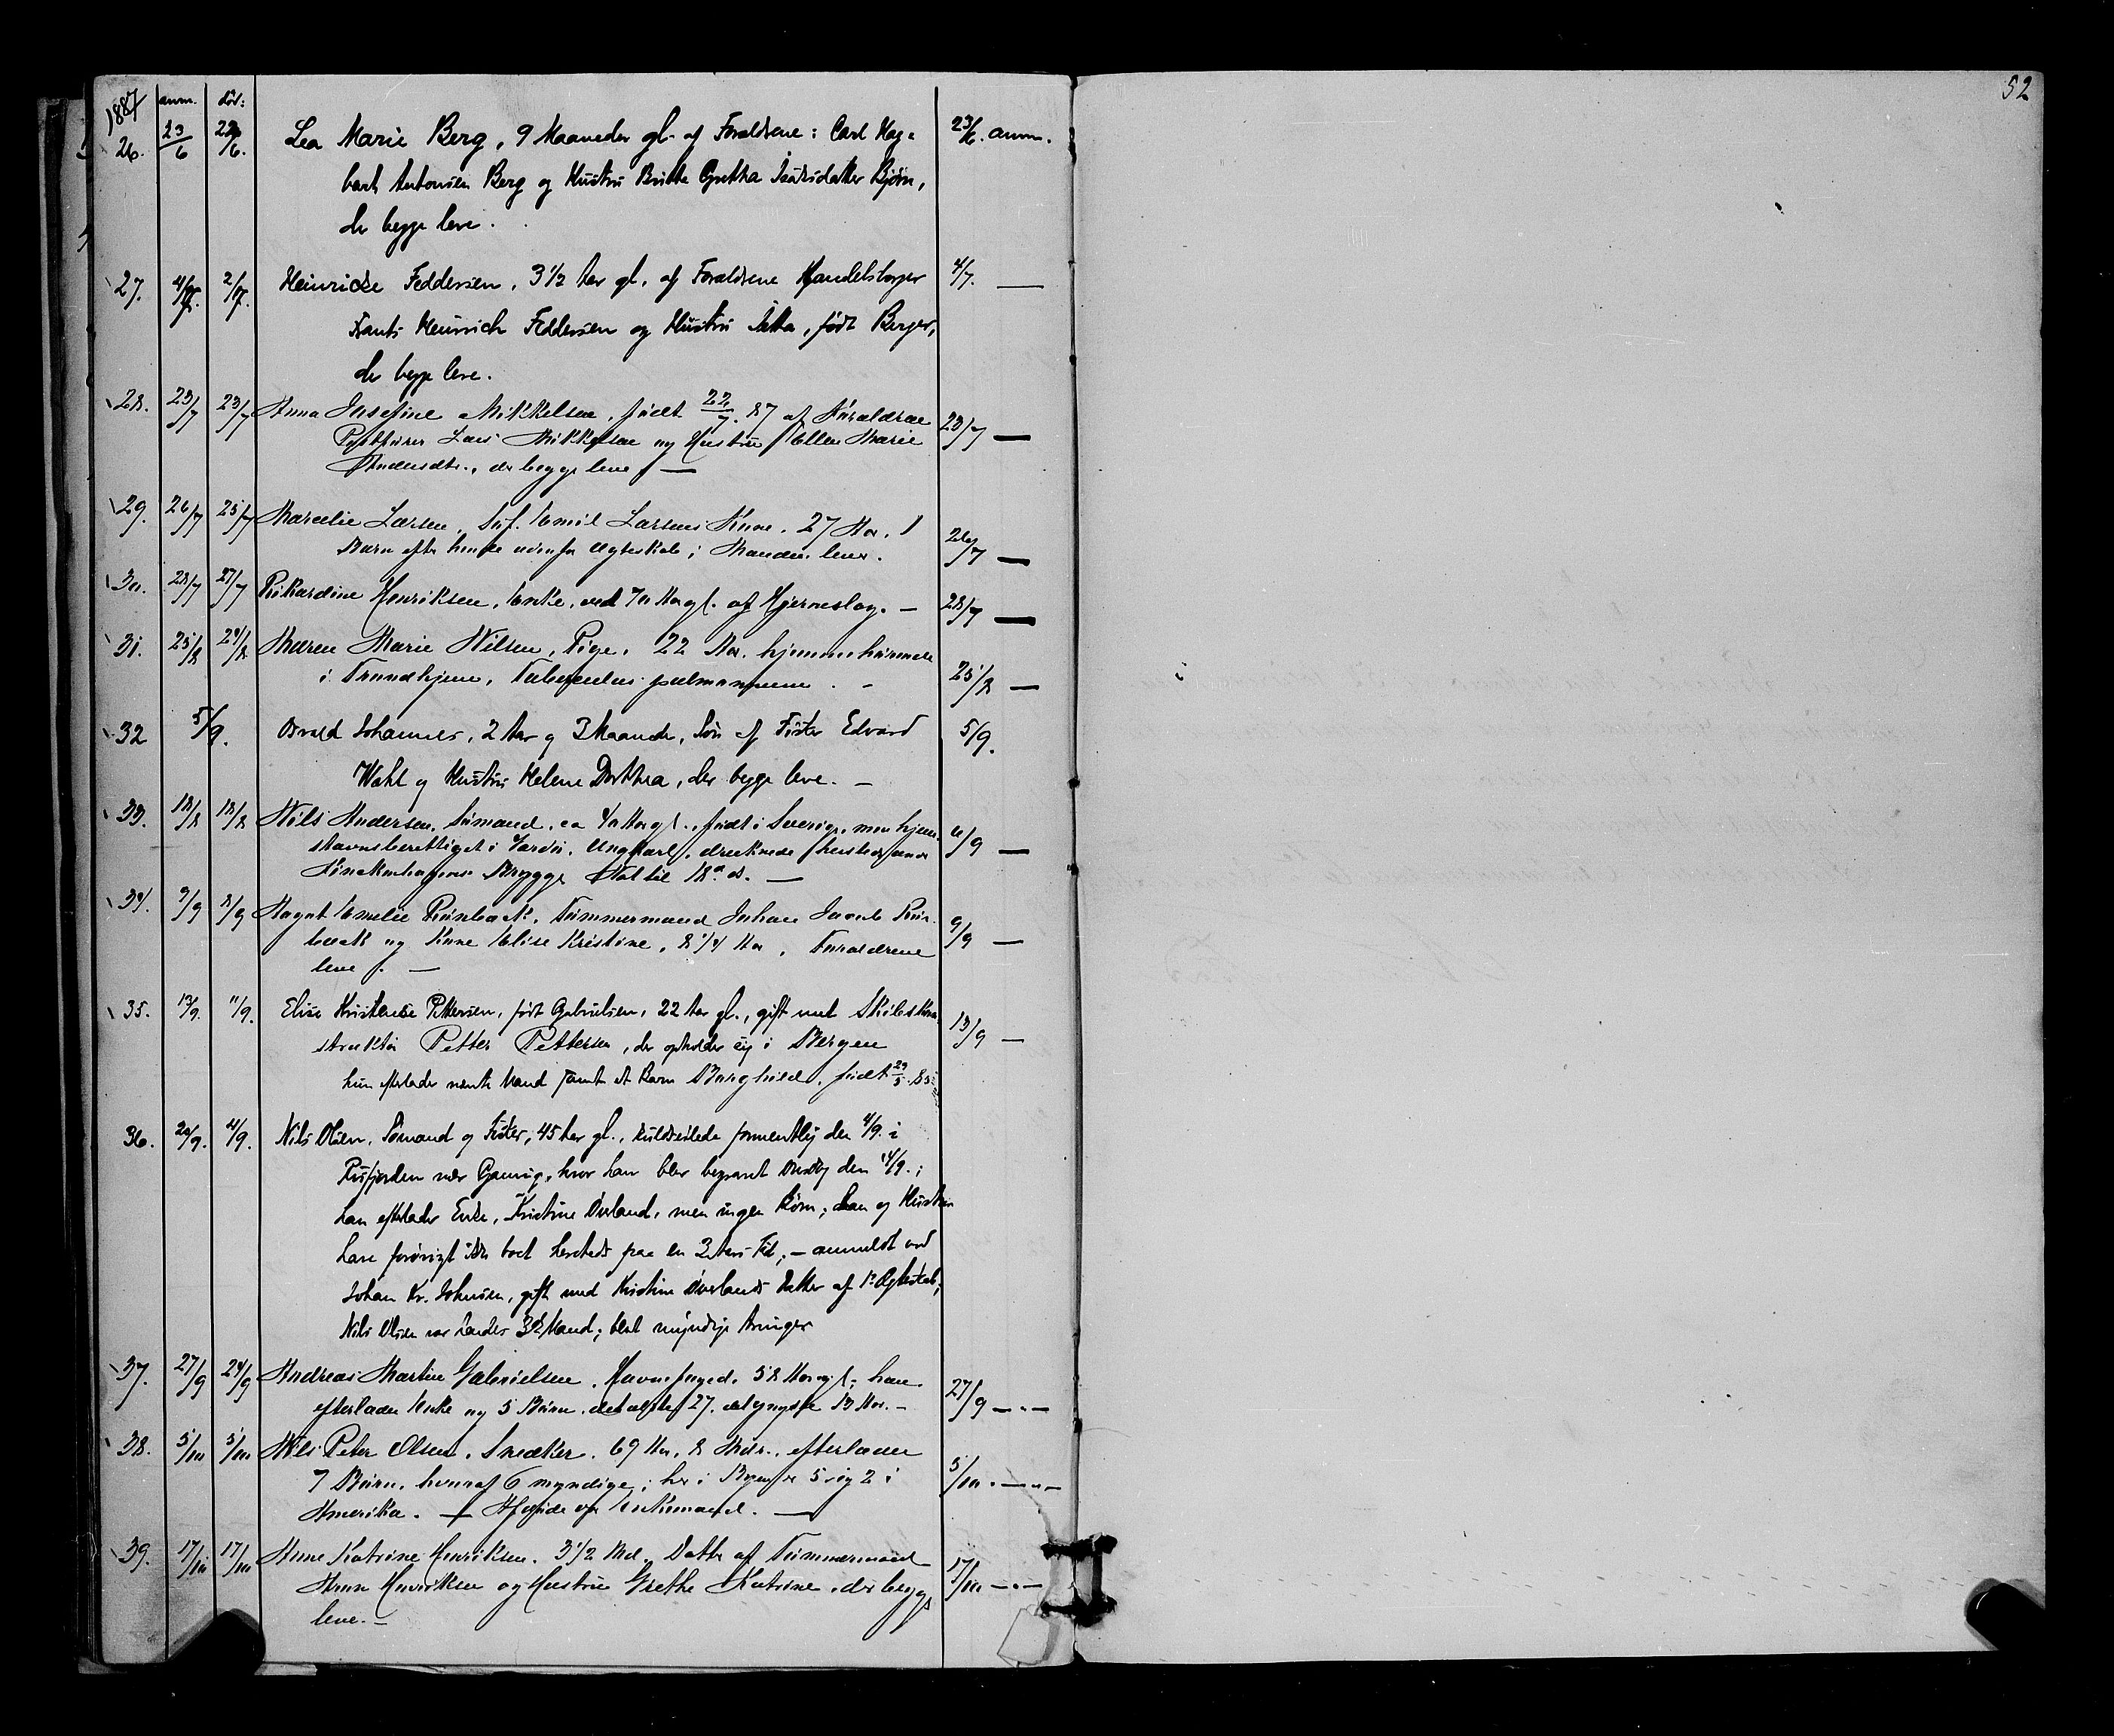 52
1887 anm. død:
26. 23/6 22/6. Lea Marie Berg, 9 Maaneder gl. af Forældrene: Carl Hag- 23/6. anm.
bart Antonsen Berg og Hustru Britta Gretha Isaksdatter Bjørn,
der begge leve.
27. 4/7. 2/7. Heinricke Feddersen, 3 1/2 Aar gl. af Forældrene Handelsborger 4/7. —
Frants Heinrich Feddersen og Hustru Jetta, født Berger,
der begge leve.
28. 23/7 23/7 Anna Josefine Mikkelsen, født 22/7. 87 af Forældrene 23/7 —
Postfører Lars Mikkelsen og Hustru Ellen Marie
Andersdtr., der begge leve —
29. 26/7 25/7 Marcelie Larsen, Emil Larsens Kone. 27 Aar. 1 26/7 —
Barn efter hende udenfor Ægteskab; Manden lever.
30. 28/7 27/7 Rikardine Henriksen, Enke, ved 70 Aar gl. af Hjerneslag. — 28/7 —
31. 25/8 24/8 Maren Marie Nilsen, Pige, 22 Aar. hjemmehørende 25/8 —
i Trondhjem, Tuberculos. pulmonum. —
32 5/9. Osvald Johannes, 2 Aar og 3 Maaneder, Søn af Fisker Edvard 5/9.
Wahl og Hustru Helene Dorthea, der begge leve. —
33. 18/8 18/8 Nils Andersen, Sømand, ca 40 Aar gl., født i Sverige, men hjem- 6/9 —
stavnsberettiget i Vardø. Ungkarl, druknede hersteds
Brygge Nat til 18. ds. —
34. 9/9 8/9 Hagnt Emelie Rønbeck, Tømmermand Johan Jacob Røn- 9/9 —
beck og Kone Elise Kristine, 8 1/4 Aar, Forældrene
leve. —
35. 13/9. 11/9. Elise Kristence Pettersen, født Gabrielsen, 22 Aar gl., gift med Skibskon- 13/9 —
struktør Petter Pettersen, der opholder sig i Bergen
hun efterlader nævnte Mand samt et Barn Borghild, født 29/5. 85
36. 20/9. 4/9. Nils Olsen, Sømand og Fisker, 45 Aar gl., kuldseilede formentlig den 4/9. i
nær Gamvig, hvor han blev begravet den 14/9.;
han efterlader Enke, Kristine Øverland, men ingen Børn; han og Hustru
have forøvrigt ikke boet herstedt paa en 3 Aars Tid; — anmeldt ved
Johan Kr. Johnsen, gift med Kristine Øverlands Datter af 1ste Ægteskab;
Nils Olsen var hendes 3die Mand; blot myndige Arvinger
37. 27/9 24/9 Andreas Martin Gabrielsen, Havnefoged. 58 Aar gl.; han 27/9 — " —
efterlader Enke og 5 Børn, det ældste 27. det yngste 13 Aar. —
38. 5/10 5/10 Nils Peter Olsen, Snedker, 69 Aar. 8 Mdr., efterlader 5/10. — " —
7 Børn, hvoraf 6 myndige; her i Byen er 5 og 2 i
Amerika. — Afgik og Enkemand. —
39. 17/10 17/10 Anne Katrine Henriksen. 3 1/2 Md. Datter af Tømmermand 17/10 — " —
Henriksen og Hustru Grethe Katrine, der begge
leve. —